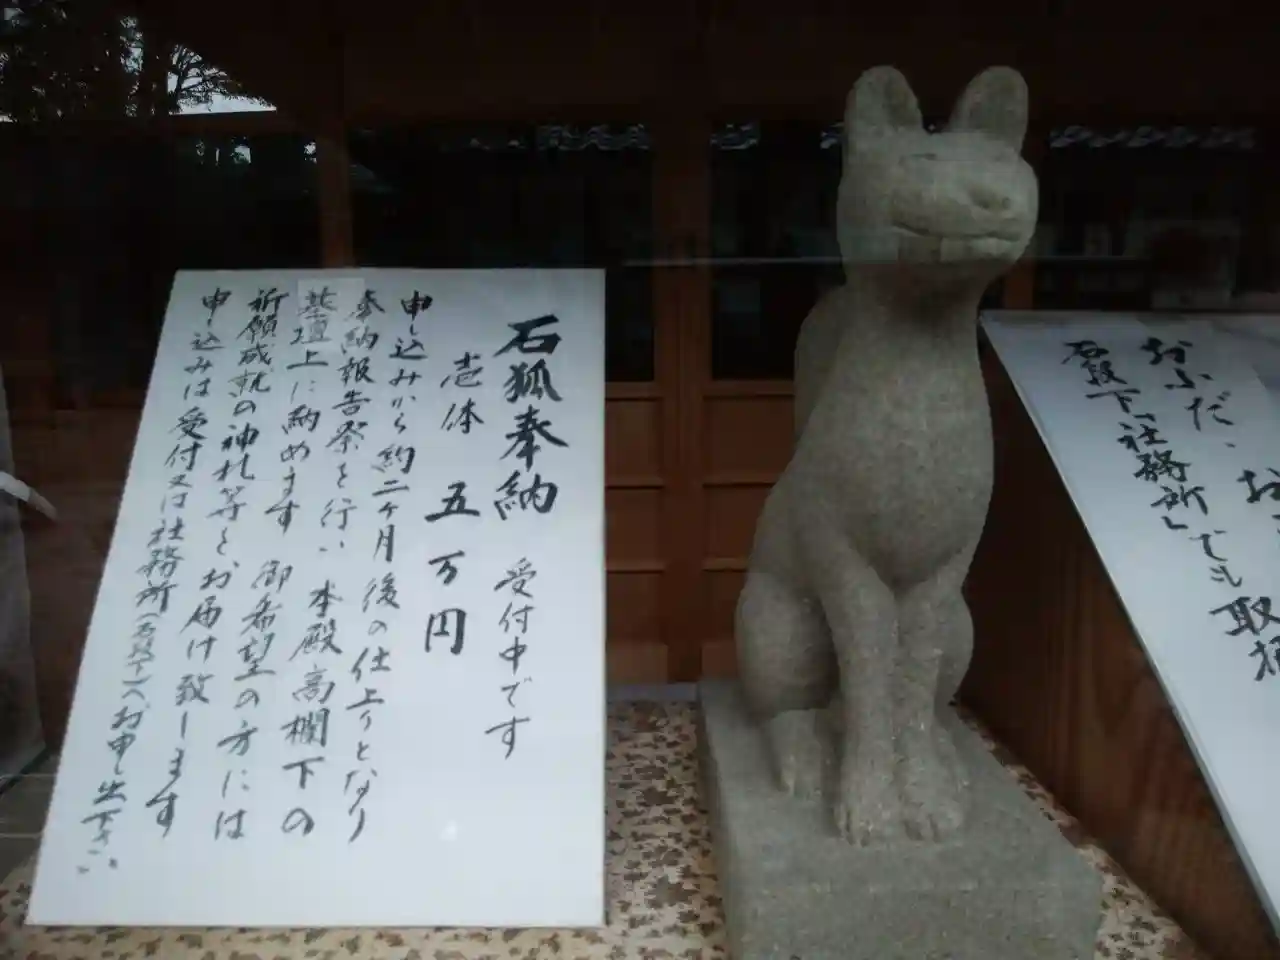 石狐奉納 受付中です
壱体 五万円
申し込みから約二ヶ月後の仕上りとなり
奉納報告祭を行い 本殿高欄下の
基壇上に納めます 御希望の方には
祈願成就の神札等をお届け致します
申し込みは受付又は社務所(石段下)へお申し出下さい
おふだ、お
石段下「社務所」でも取扱